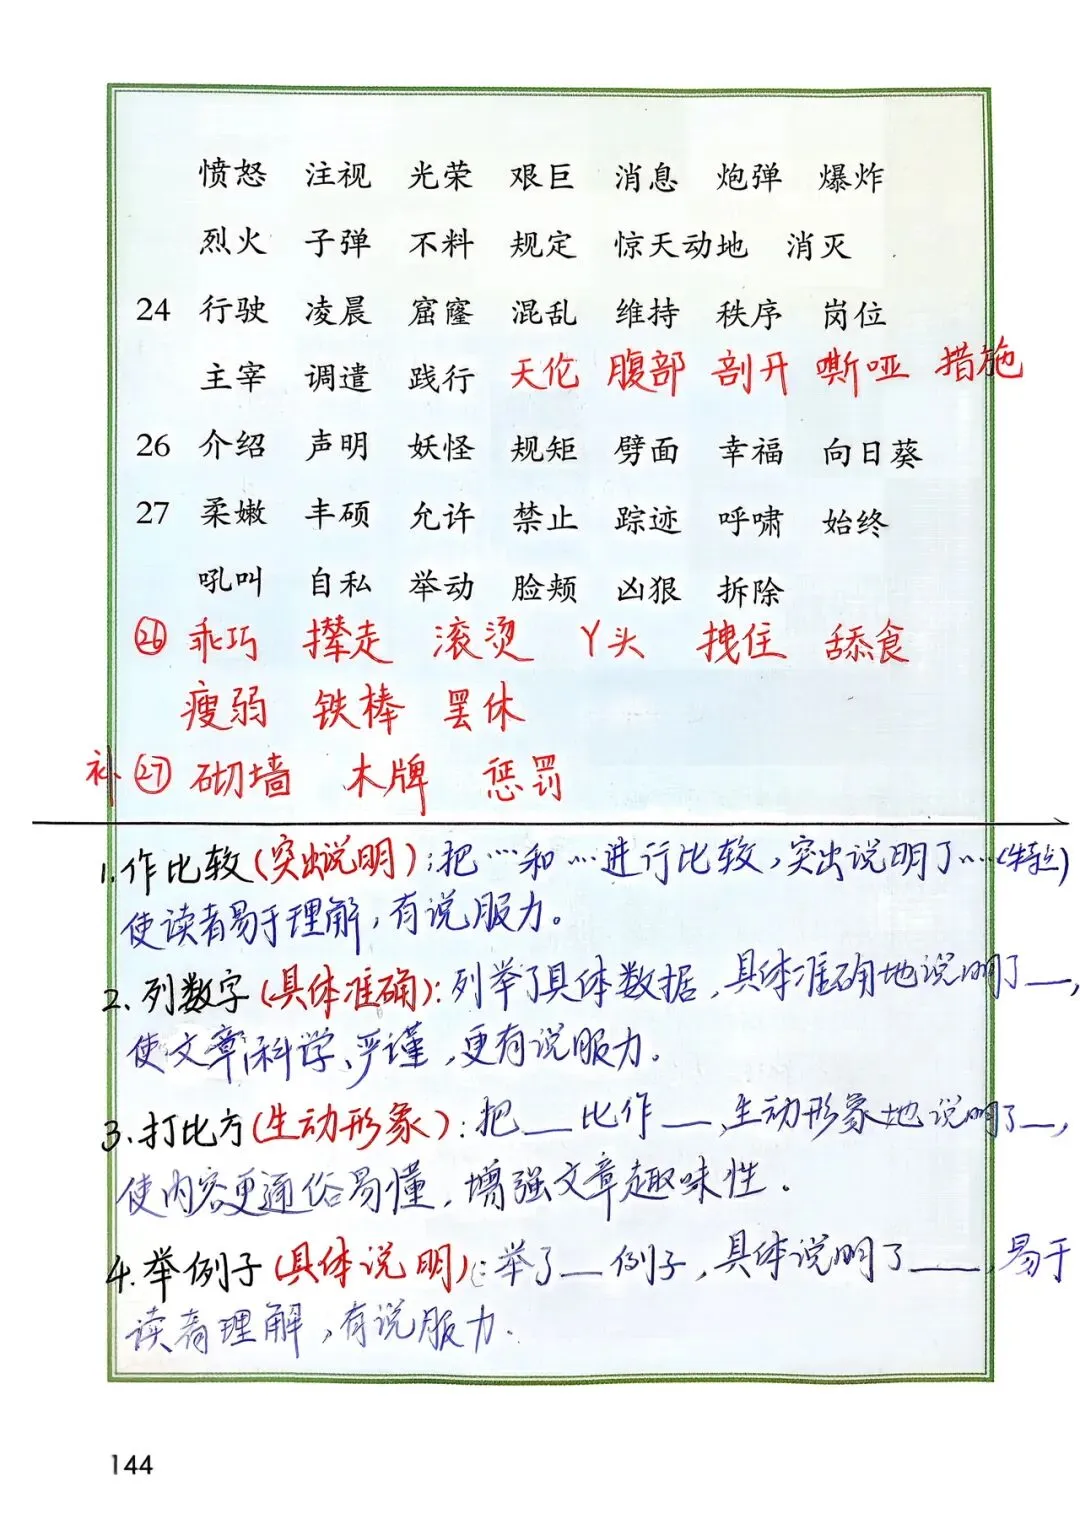 愤怒 注视 光荣 艰巨 消息 炮弹 爆炸
烈火 子弹 不料 规定 惊天动地 消灭
24 行驶 凌晨 窟窿 混乱 维持 秩序 岗位
主宰 调遣 践行 天伦 腹部 剖开 嘶哑 措施
26 介绍 声明 妖怪 规矩 劈面 幸福 向日葵
27 柔嫩 丰硕 允许 禁止 踪迹 呼啸 始终
吼叫 自私 举动 脸颊 凶狠 拆除
㉖ 乖巧 撵走 滚烫 丫头 拽住 舔食
瘦弱 铁棒 罢休
补 ㉗ 砌墙 木牌 惩罚
1.作比较(突出说明):把……和……进行比较,突出说明了……(特点)
使读者易于理解,有说服力。
2.列数字(具体准确):列举了具体数据,具体准确地说明了__,
使文章科学、严谨,更有说服力.
3.打比方(生动形象):把__比作__,生动形象地说明了__,
使内容更通俗易懂,增强文章趣味性.
4.举例子(具体说明):举了__例子,具体说明了___,易于
读者理解,有说服力.
144